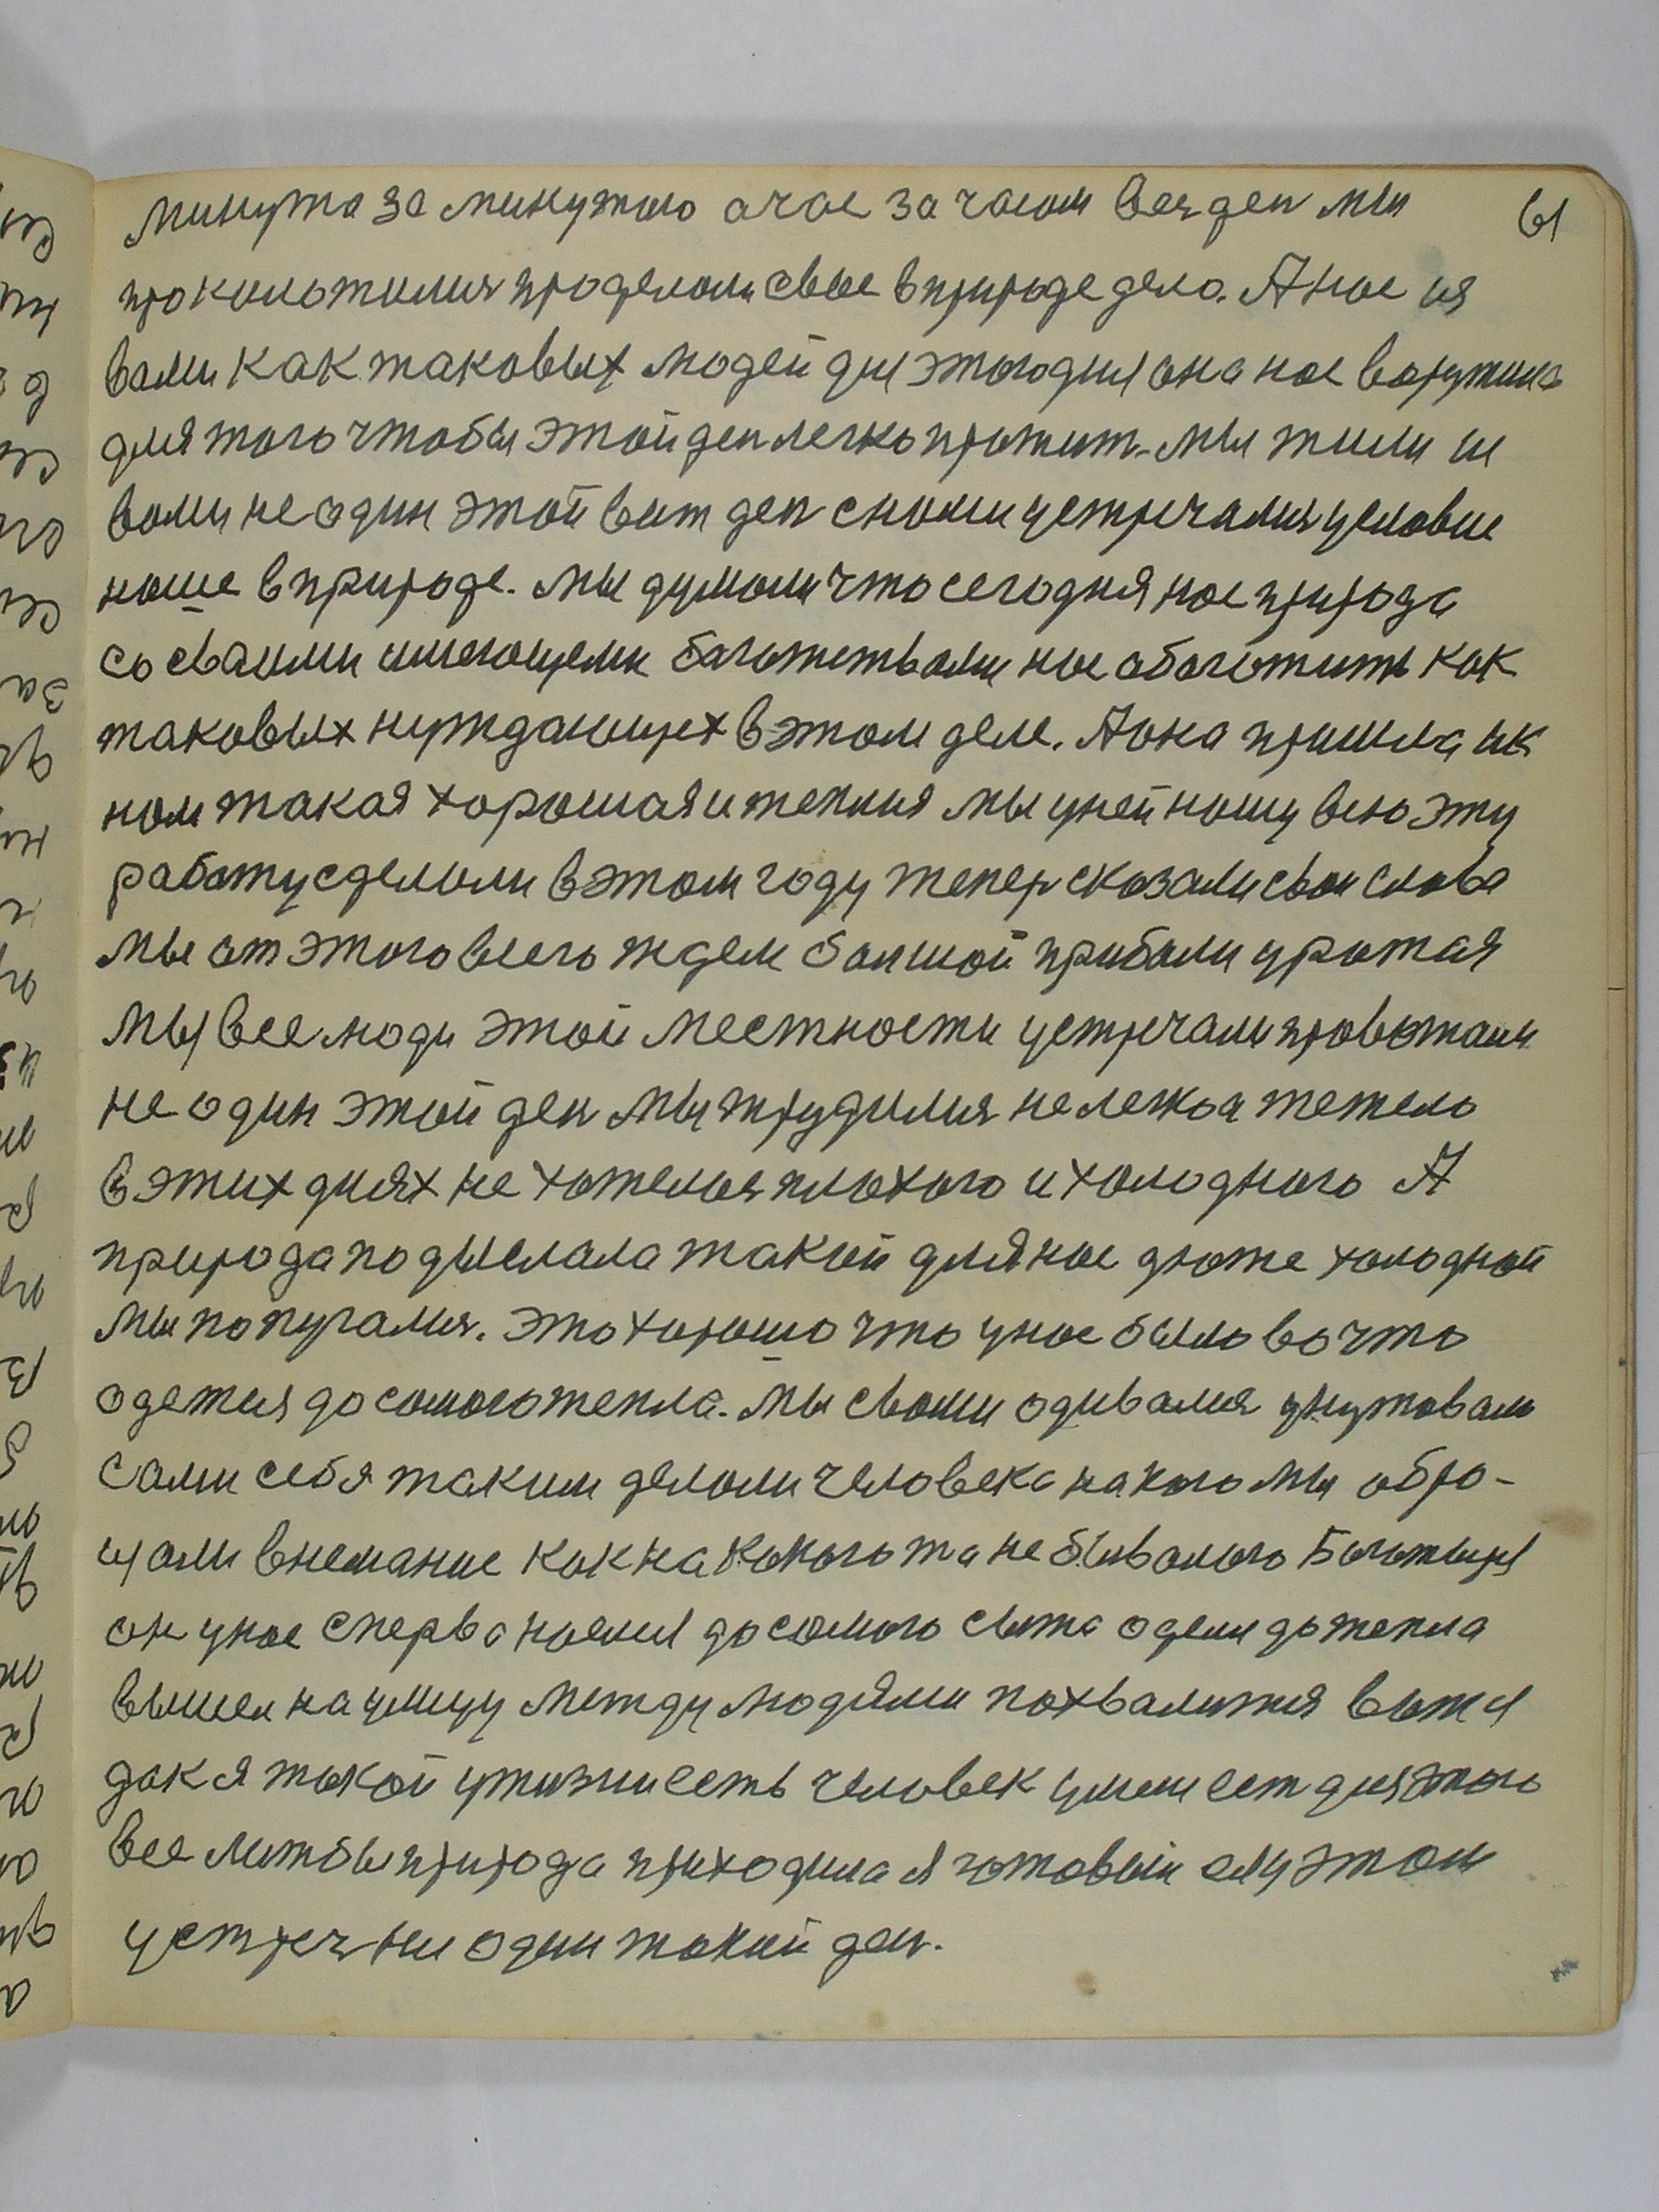 61
минута за минутою а час за часом весь ден мы
прокилотились проделали свое в природе дело. А нас ис
вами как таковых людей для этого дня она нас
для того чтобы этой ден легко прожит. мы жили ис
вами не один этой вот ден снами устричались условие
наше в природе. мы думали что сегодня нас природа
со своими имеющеми багатствами нас абагатить как
таковых нуждающихся в этом деле. А она пришла ик
нам такая хорошая и теплия мы уней нашу всю эту
работу сделали в этом году тепер сказали свои слова
мы от этого всего ждем болшой прибали урожая
мы все люди этой местности устричали провожали
не один этой ден мы трудились не легко а тежело
в этих днях не хотелось плохого и холодного А
природа подыслала такой для нас дюже холодной
мы попугались. это хорошо что унас было во что
одется до самого тепла. мы свами одивался укутовали
сами себя таким делали человека на кого мы обро-
щали внемание как на какого та не бывалого Богатыря
он унас сперва наелся до самого сыта оделся до тепла
вышел на улицу между людями похвалится вот я
дак я такой ужизни есть человек умени ест для этого
все лиш бы природа приходила я готовый ея у этом
устреч ни один такий ден.